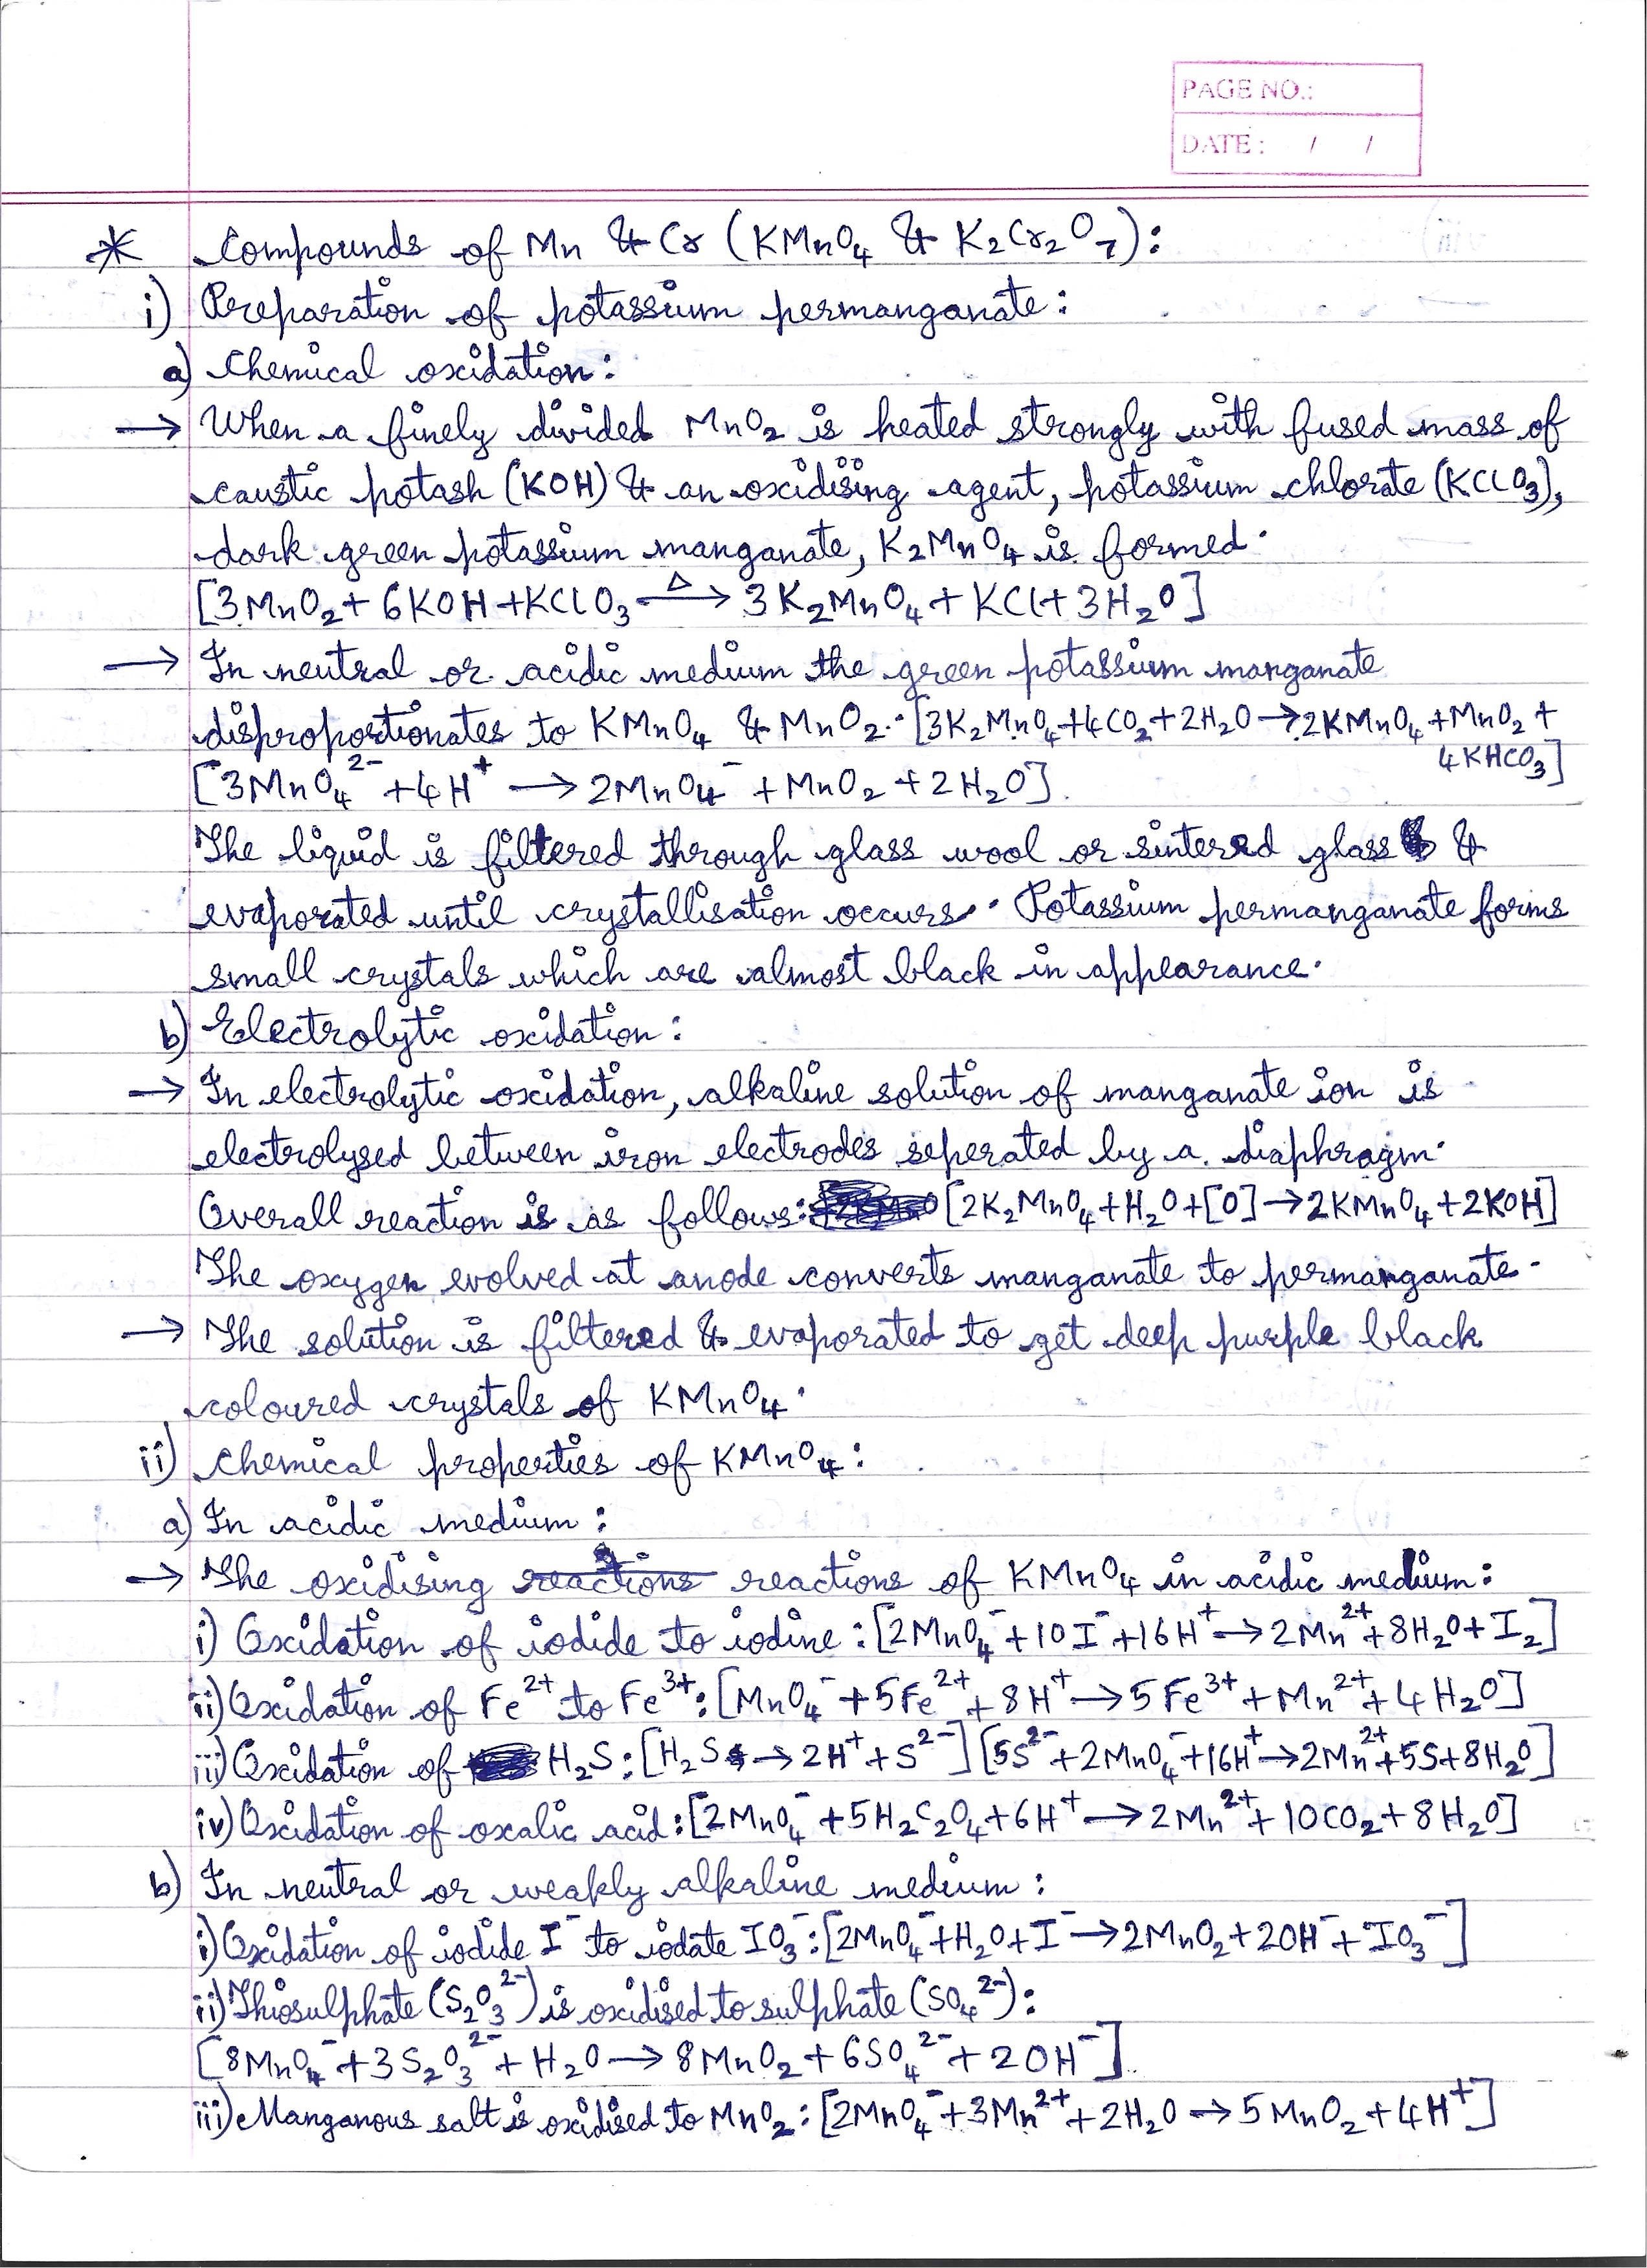 PAGE NO.:
DATE : / /
* Compounds of Mn & Cr (KMnO₄ & K₂Cr₂O₇):
i) Preparation of potassium permanganate:
a) Chemical oxidation:
→ When a finely divided MnO₂ is heated strongly with fused mass of
caustic potash (KOH) & an oxidising agent, potassium chlorate (KClO₃),
dark green potassium manganate, K₂MnO₄ is formed.
[3MnO₂ + 6KOH + KClO₃ —Δ→ 3K₂MnO₄ + KCl + 3H₂O]
→ In neutral or acidic medium the green potassium manganate
disproportionates to KMnO₄ & MnO₂. [3K₂MnO₄+4CO₂+2H₂O→2KMnO₄+MnO₂+
4KHCO₃]
[3MnO₄²⁻ + 4H⁺ → 2MnO₄⁻ + MnO₂ + 2H₂O].
The liquid is filtered through glass wool or sintered glass &
evaporated until crystallisation occurs. Potassium permanganate forms
small crystals which are almost black in appearance.
b) Electrolytic oxidation:
→ In electrolytic oxidation, alkaline solution of manganate ion is
electrolysed between iron electrodes seperated by a diaphragm.
Overall reaction is as follows: [2K₂MnO₄+H₂O+[O]→2KMnO₄+2KOH]
The oxygen evolved at anode converts manganate to permanganate.
→ The solution is filtered & evaporated to get deep purple black
coloured crystals of KMnO₄.
ii) Chemical properties of KMnO₄:
a) In acidic medium:
→ The oxidising reactions reactions of KMnO₄ in acidic medium:
i) Oxidation of iodide to iodine: [2MnO₄⁻+10I⁻+16H⁺→2Mn²⁺+8H₂O+I₂]
ii) Oxidation of Fe²⁺ to Fe³⁺: [MnO₄⁻+5Fe²⁺+8H⁺→5Fe³⁺+Mn²⁺+4H₂O]
iii) Oxidation of H₂S: [H₂S→2H⁺+S²⁻] [5S²⁻+2MnO₄⁻+16H⁺→2Mn²⁺+5S+8H₂O]
iv) Oxidation of oxalic acid: [2MnO₄⁻+5H₂C₂O₄+6H⁺→2Mn²⁺+10CO₂+8H₂O]
b) In neutral or weakly alkaline medium:
i) Oxidation of iodide I⁻ to iodate IO₃⁻: [2MnO₄⁻+H₂O+I⁻→2MnO₂+2OH⁻+IO₃⁻]
ii) Thiosulphate (S₂O₃²⁻) is oxidised to sulphate (SO₄²⁻):
[8MnO₄⁻+3S₂O₃²⁻+H₂O→8MnO₂+6SO₄²⁻+2OH⁻].
iii) Manganous salt is oxidised to MnO₂: [2MnO₄⁻+3Mn²⁺+2H₂O→5MnO₂+4H⁺]